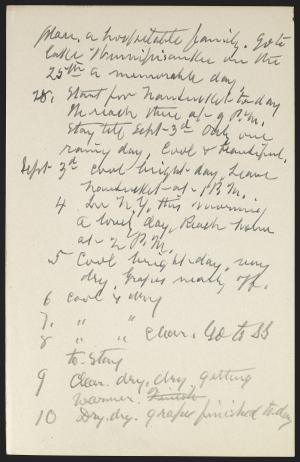 place, a hospitable family. Go to
Lake Winnipisaukee on the
25th a memorable day
28. Start for Nantucket to-day
reach there at 9 P.M.
stay till Sept 3d Only one
rainy day, Cool & beautiful.
Sept 3d Cool bright day, Leave
Nantucket at 1 P.M.
4 In N.Y. this morning
a lovely day, Reach home
at 2 P.M.
5 Cool bright day, very
dry. Grapes nearly off.
6 Cool & dry
7. " "
8 " " Clear. Go to SS
to stay
9 Clear. dry, dry, getting
warmer. Finish
10 Dry, dry. grapes finished to-day